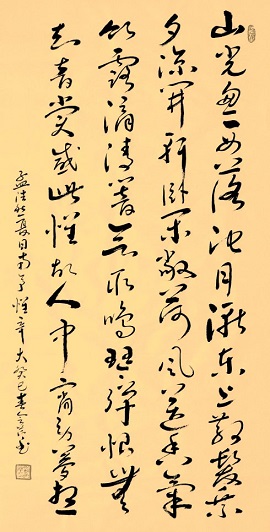 山光忽西落池月漸東上散髮乘
夕涼開軒卧閑敞荷風送香氣
竹露滴清響欲取鳴琴彈恨無
知音賞感此懷故人中宵勞夢想
孟浩然夏日南亭懷辛大癸巳春書